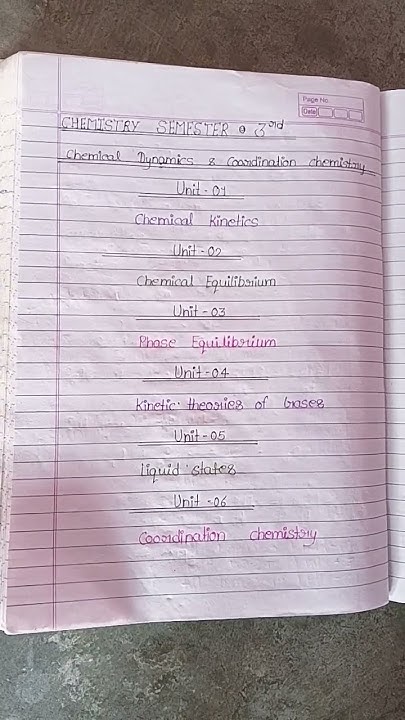 Page No.
Date
CHEMISTRY SEMESTER 3rd
Chemical Dynamics & Coordination chemistry
Unit-01
Chemical Kinetics
Unit-02
Chemical Equilibrium
Unit-03
Phase Equilibrium
Unit-04
Kinetic theories of Gases
Unit-05
Liquid states
Unit-06
Coordination chemistry